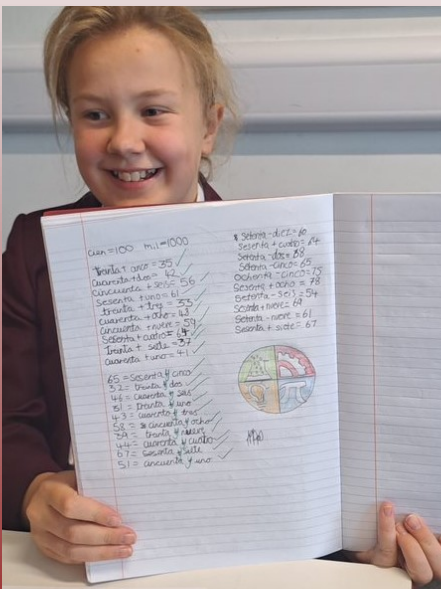 cien = 100 mil = 1000
trenta + cinco = 35
Cuarenta + dos = 42
Cincuenta + seis = 56
Sesenta + uno = 61
trenta + tres = 33
cuarenta + ocho = 48
Cincuenta + nueve = 59
Sesenta + cuatro = 64
trenta + siete = 37
Cuarenta + uno = 41
65 = Sesenta y cinco
32 = trenta y dos
46 = cuarenta y seis
31 = trenta y uno
43 = cuarenta y tres
58 = cincuenta y ocho
39 = trenta y nueve
44 = cuarenta y cuatro
67 = sesenta y siete
51 = cincuenta y uno
Setenta - diez = 60
Sesenta + cuatro = 64
Setenta - dos = 68
Setenta - cinco = 65
Ochenta - cinco = 75
Setenta + ocho = 78
Setenta - nueve = 61
Sesenta + siete = 67